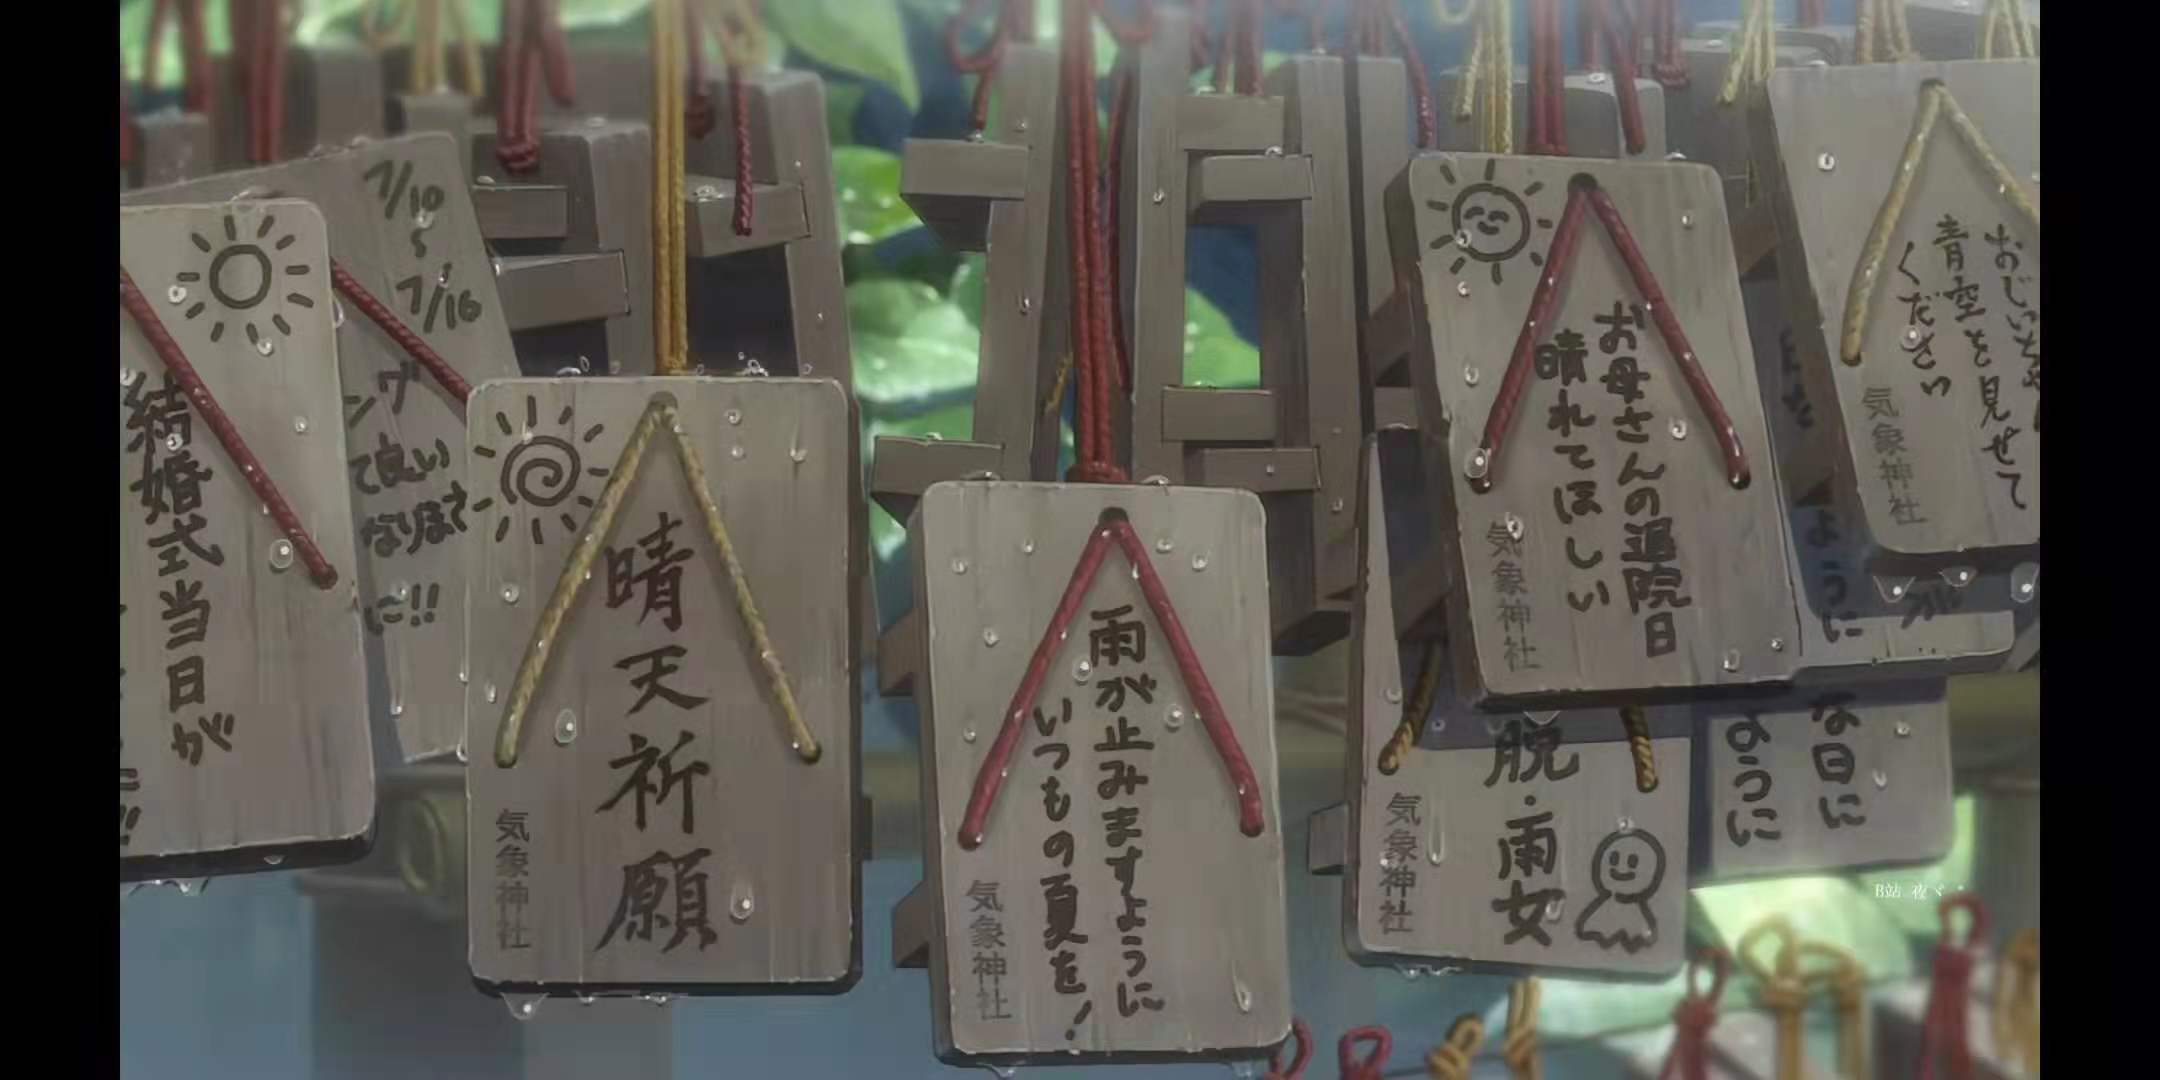 結婚式当日が
7/10
〜
7/16
ング
て良い
なりますよ
に!!
晴天祈願
気象神社
雨が止みますように
いつもの夏を!
気象神社
お母さんの退院日
晴れてほしい
気象神社
脱・雨女
気象神社
おじいちゃ
青空を見せて
ください
気象神社
ように
が
な日に
ように
B站